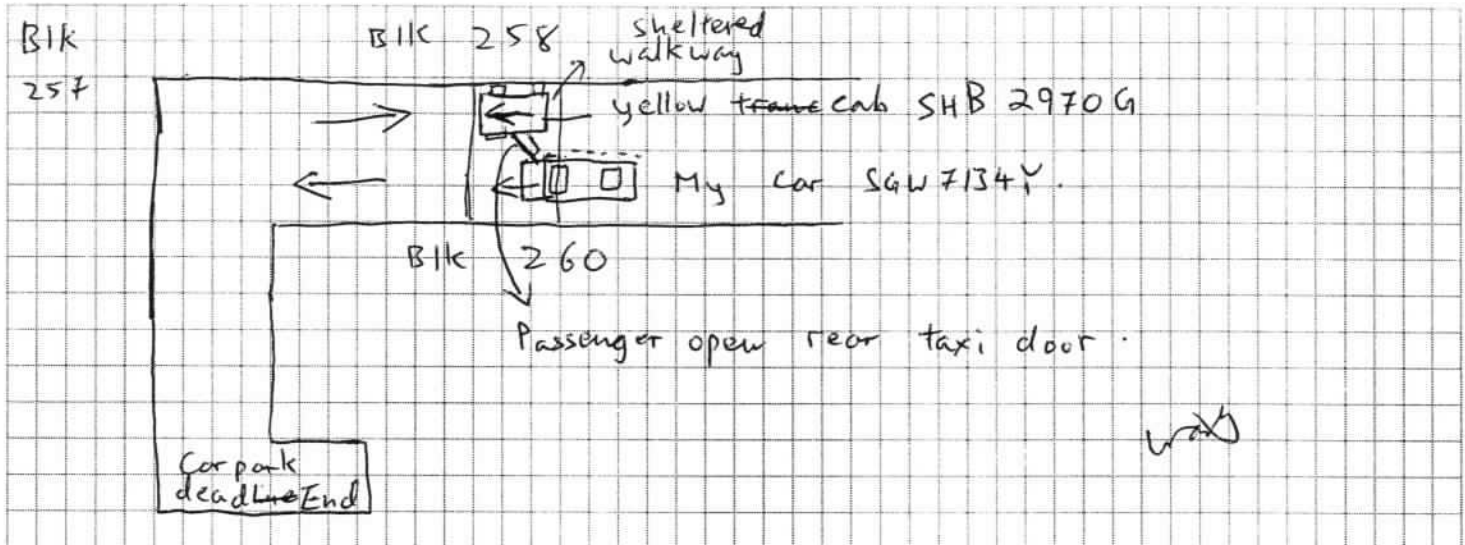 Blk 257
Blk 258
sheltered walkway
yellow cab SHB 2970G
My car SGW 7134Y.
Blk 260
Passenger open rear taxi door.
Car park dead End